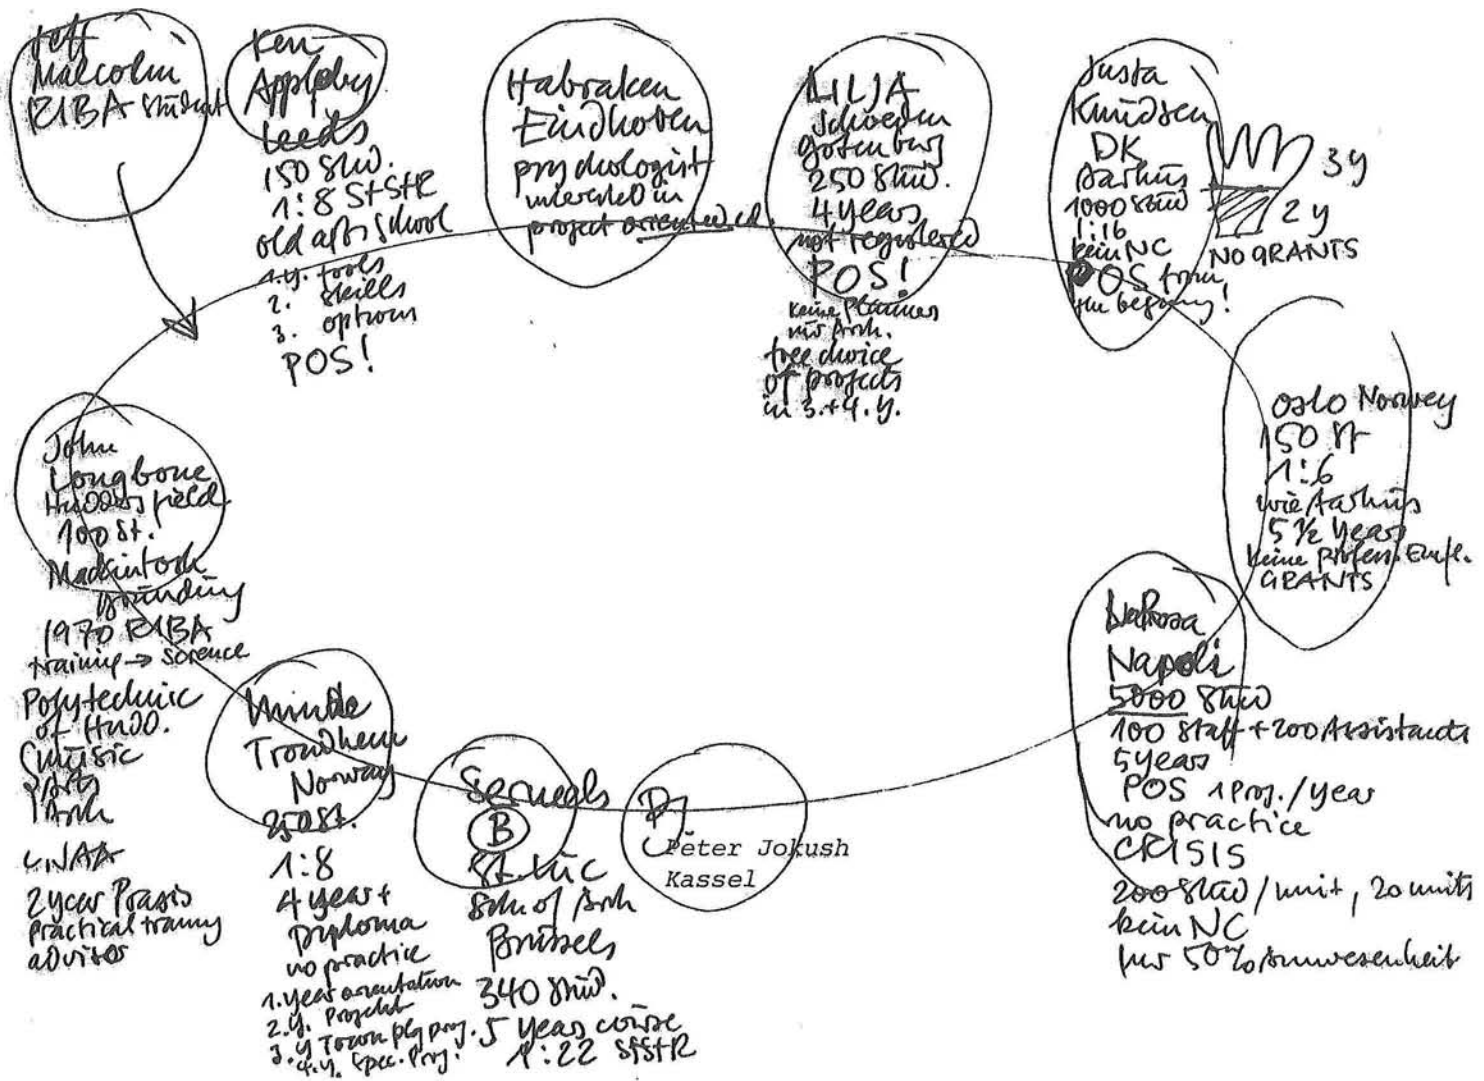 Jeff
Malcolm
RIBA Student
Ken
Appleby
Leeds
150 Stud.
1:8 StStR
old arts school
1.y. tools
2. skills
3. options
POS!
Habraken
Eindhoven
psychologist
interested in
project oriented ed.
LILJA
Schweden
Gotenburg
250 Stud.
4 years
not registered
POS!
keine Planner
nur Arch.
free choice
of projects
in 3.+4. y.
Justa
Knudsen
DK
Aarhus
1000 Stud
1:16
kein NC
POS from
the beginning!
3y
2 y
NO GRANTS
Oslo Norway
150 St
1:6
wie Aarhus
5 ½ Years
keine profess. Empf.
GRANTS
Napoli
5000 Stud
100 Staff + 200 Assistants
5 years
POS 1 Proj./year
no practice
CRISIS
200 Stud/unit, 20 units
kein NC
nur 50% Anwesenheit
Peter Jokush
Kassel
B
St. Luc
Sch of Arch
Brüssels
340 Stud.
5 years course
1:22 StStR
Minde
Trondheim
Norway
250 St.
1:8
4 year +
Diploma
no practice
1. year orientation
2. y. Projekt
3. y Town plg proj.
4. y. Spec. Proj.
John
Longbone
Huddersfield
100 St.
Mackintosh
gründung
1970 RIBA
training → science
Polytechnic
of Hudd.
Music
Arts
Arch
CNAA
2 year Praxis
practical training
advisor